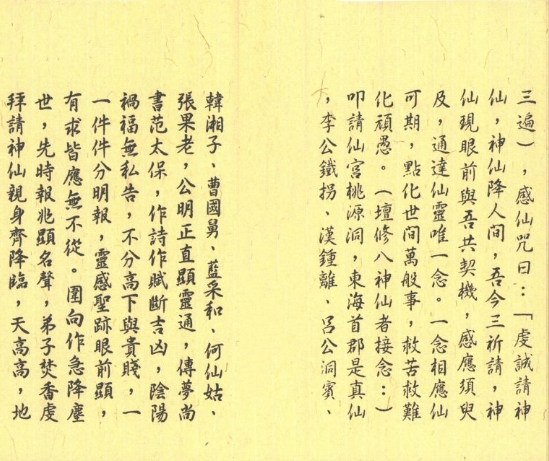 三遍），感仙咒曰：「虔誠請神
仙，神仙降人間，吾今三祈請，神
仙現眼前與吾共契機，感應須臾
及，通達仙靈唯一念。一念相應仙
可期，點化世間萬般事，救苦救難
化頑愚。（壇修八神仙者接念：）
叩請仙宮桃源洞，東海首郡是真仙
，李公鐵拐、漢鍾離、呂公洞賓、
韓湘子、曹國舅、藍采和、何仙姑、
張果老，公明正直顯靈通，傳夢尚
書范太保，作詩作賦斷吉凶，陰陽
禍福無私告，不分高下與貴賤，一
一件件分明報，靈感聖跡眼前顯，
有求皆應無不從。圍向作急降塵
世，先時報兆顯名聲，弟子焚香虔
拜請神仙親身齊降臨，天高高，地